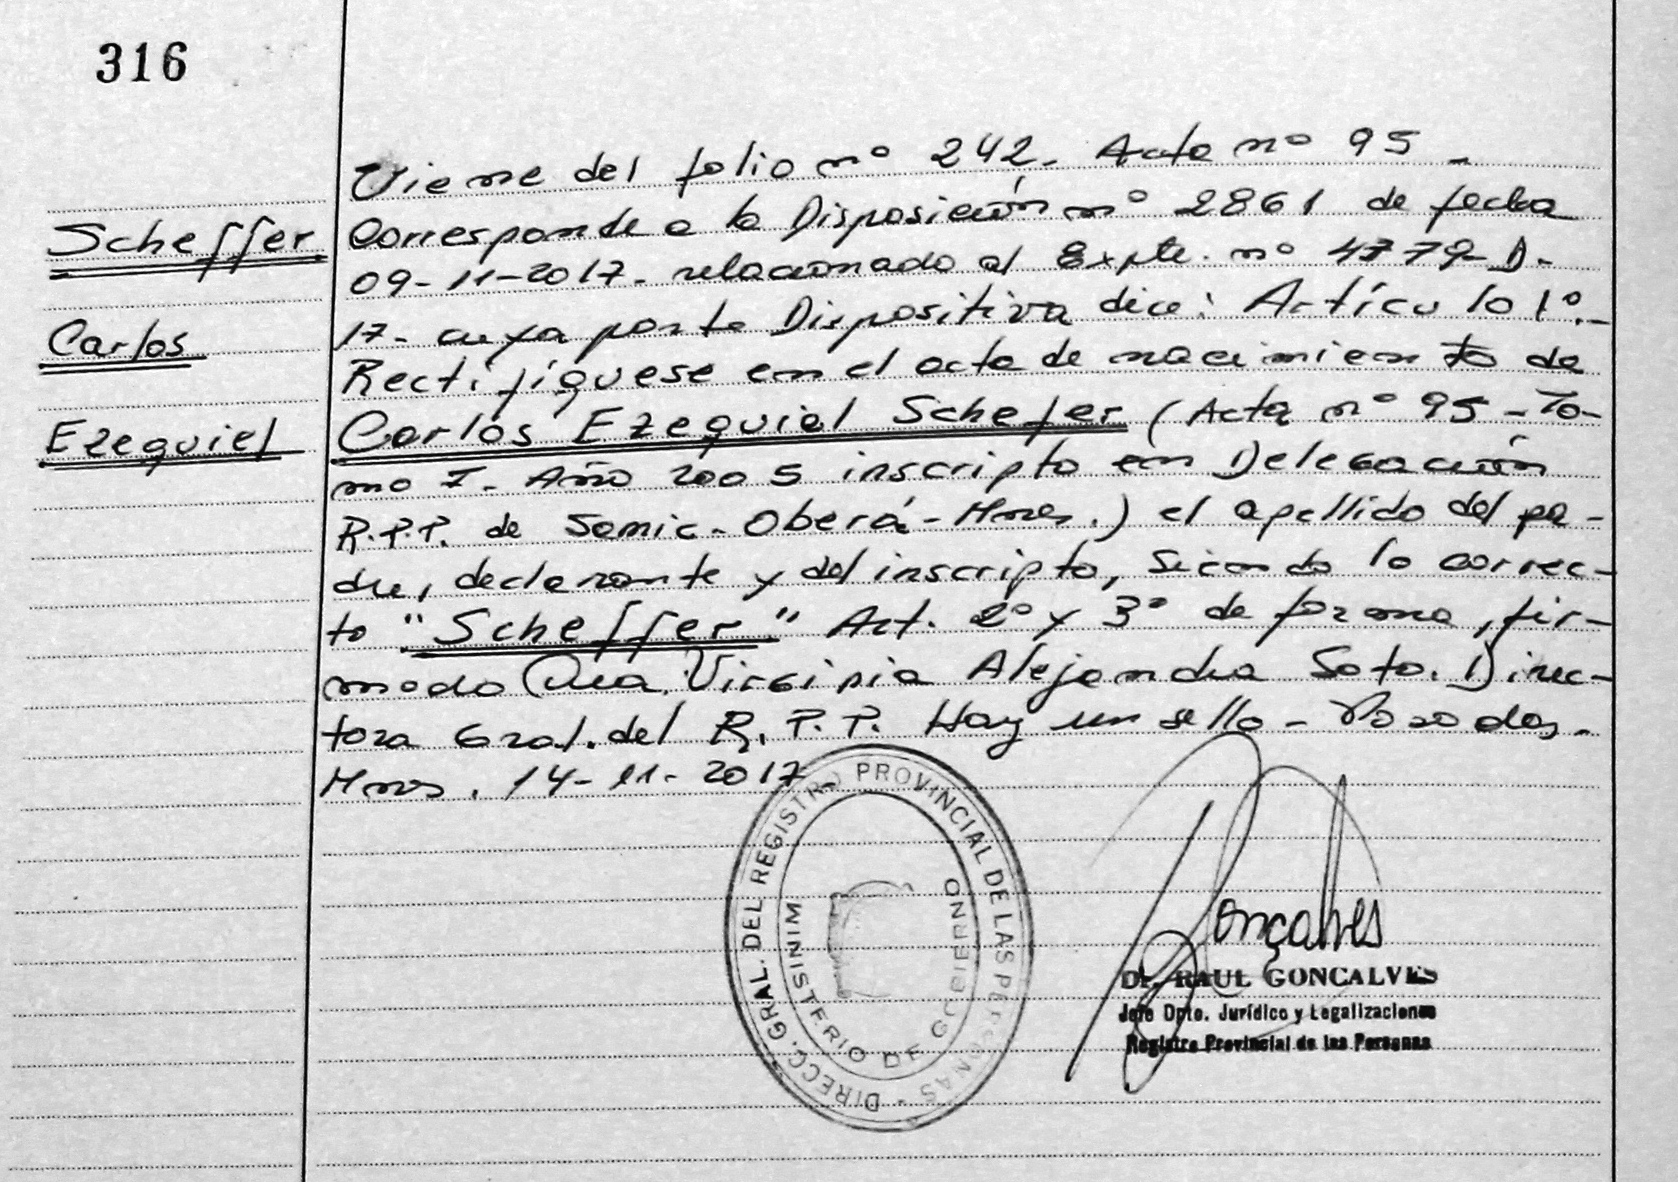 316
Scheffer
Carlos
Ezequiel
Viene del folio nº 242. Acta nº 95 -
Corresponde a la Disposición nº 2861 de fecha
09-11-2017- relacionado al Expte. nº 4779-D-
17- cuya parte Dispositiva dice: Artículo 1º.-
Rectifíquese en el acta de nacimiento de
Carlos Ezequiel Schefer (Acta nº 95 - To-
mo I- Año 2005 inscripto en Delegación
R.P.P. de Samic-Oberá-Mnes.) el apellido del pa-
dre, declarante y del inscripto, siendo lo correc-
to "Scheffer" Art. 2º y 3º de forma, fir-
mado Dra. Virginia Alejandra Soto. Direc-
tora Gral. del R. P. P. Hay un sello - Posadas.
Mnes. 14-11-2017
DIRECC. GRAL. DEL REGISTRO PROVINCIAL DE LAS PERSONAS
MINISTERIO DE GOBIERNO
Gonçalves
Dr. RAUL GONCALVES
Jefe Dpto. Jurídico y Legalizaciones
Registro Provincial de las Personas